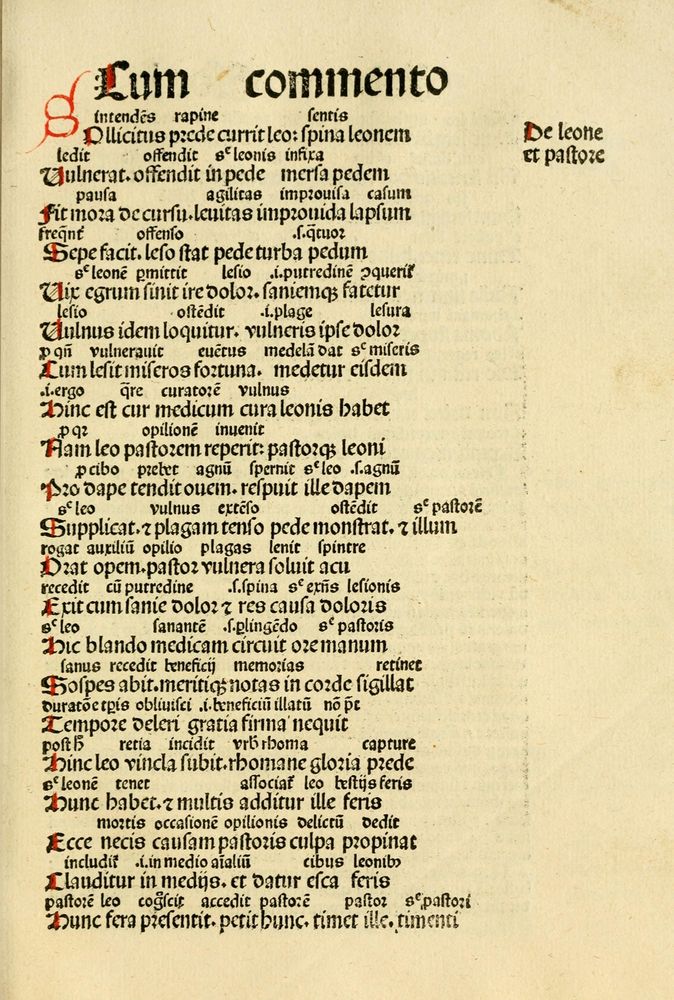 Cum commento
intendēs rapine sentis
SOllicitus prede currit leo: spina leonem
De leone
et pastore
ledit offendit sᶜ leonis infixa
Vulnerat. offendit in pede mersa pedem
pausa agilitas improuisa casum
Fit mora de cursu. leuitas improuida lapsum
offenso .s. q̄tuor
Sepe facit. leso stat pede turba pedum
sᶜ leonē ꝑmittit lesio .i. putredinē
Vix egrum sinit ire dolor. saniemqꝫ fatetur
lesio ostēdit .i. plage lesura
Vulnus idem loquitur. vulneris ipse dolor
vulnerauit euētus medelā dat sᶜ miseris
Cum lesit miseros fortuna. medetur eisdem
.i. ergo q̄re curatorē vulnus
Hinc est cur medicum cura leonis habet
opilionē inuenit
Nam leo pastorem reperit: pastorqꝫ leoni
ꝓ cibo prebet agnū spernit sᶜ leo .s. agnū
Pro dape tendit ouem. respuit ille dapem
sᶜ leo vulnus extēso ostēdit sᶜ pastorē
Supplicat. ⁊ plagam tenso pede monstrat. ⁊ illum
rogat auxiliū opilio plagas lenit spintre
Orat opem. pastor vulnera soluit acu
recedit cū putredine .s. spina sᶜ exn̄s lesionis
Exit cum sanie dolor ⁊ res causa doloris
sᶜ leo sanantē .s. ꝑlingēdo sᶜ pastoris
Hic blando medicam circuit ore manum
sanus recedit beneficij memorias retinet
Sospes abit. meritiqꝫ notas in corde sigillat
obliuisci .i. beneficiū illatū nō
Tempore deleri gratia firma nequit
retia incidit rhoma capture
Hinc leo vincla subit. rhomane gloria prede
sᶜ leonē tenet leo bestijs feris
Hunc habet. ⁊ multis additur ille feris
mortis occasionē opilionis delictū dedit
Ecce necis causam pastoris culpa propinat
.i. in medio aīaliū cibus
Clauditur in medijs. et datur esca feris
pastorē leo accedit pastorē pastor sᶜ pastori
Hunc fera presentit. petit hunc. timet ille. timenti